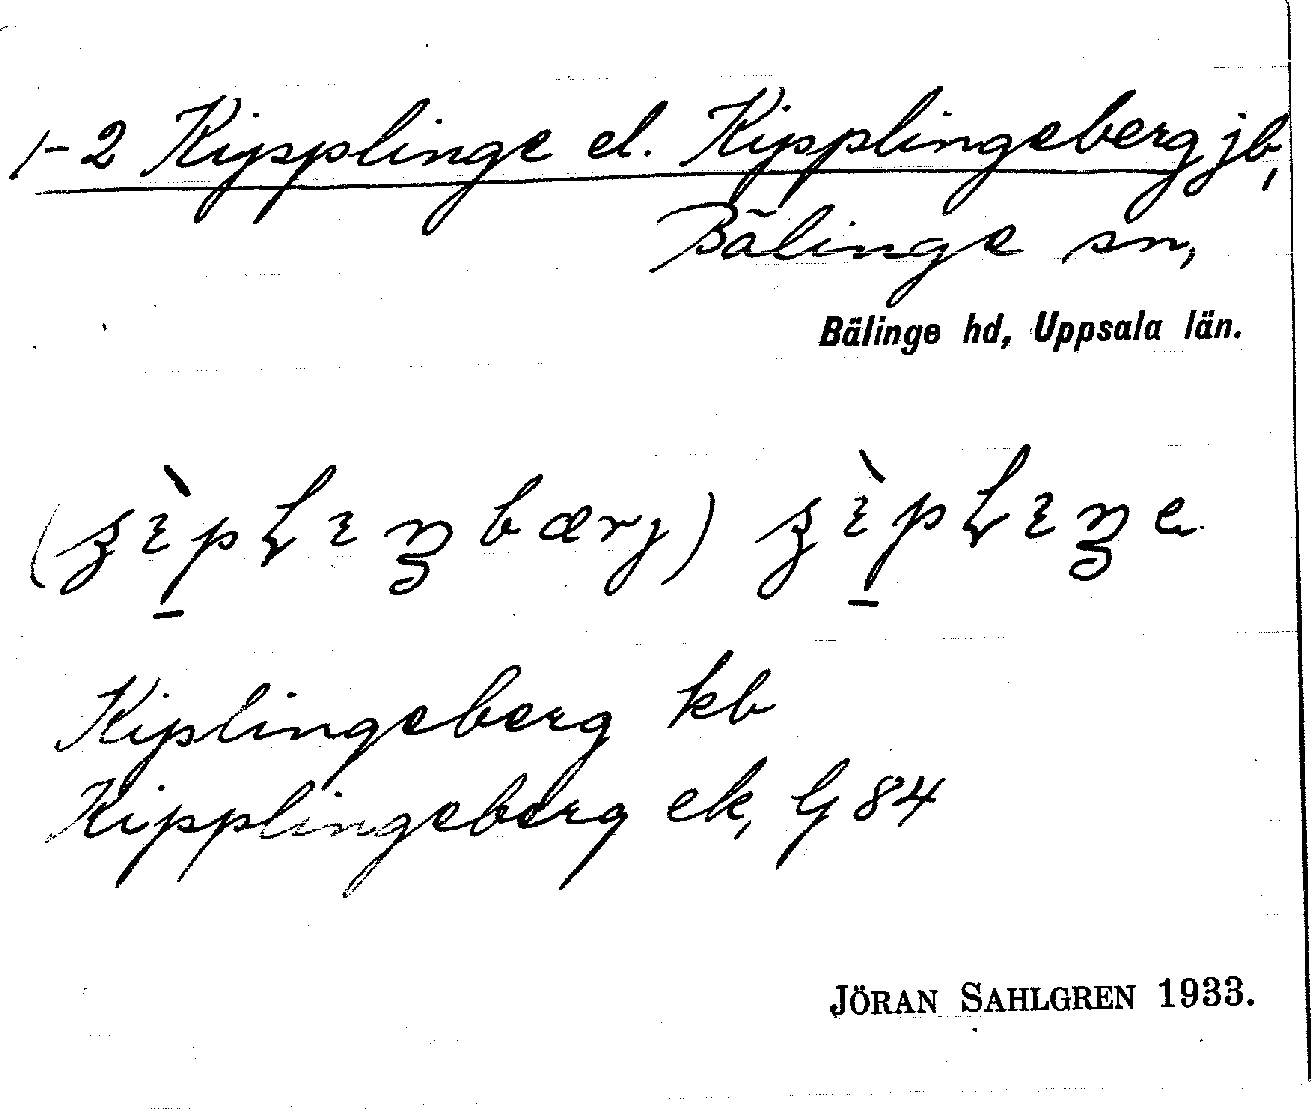 1-2 Kipplinge el. Kipplingeberg jb,
Bälinge sn,
Bälinge hd, Uppsala län.
Kiplingeberg kb
Kipplingeberg ek, G 84
JÖRAN SAHLGREN 1933.